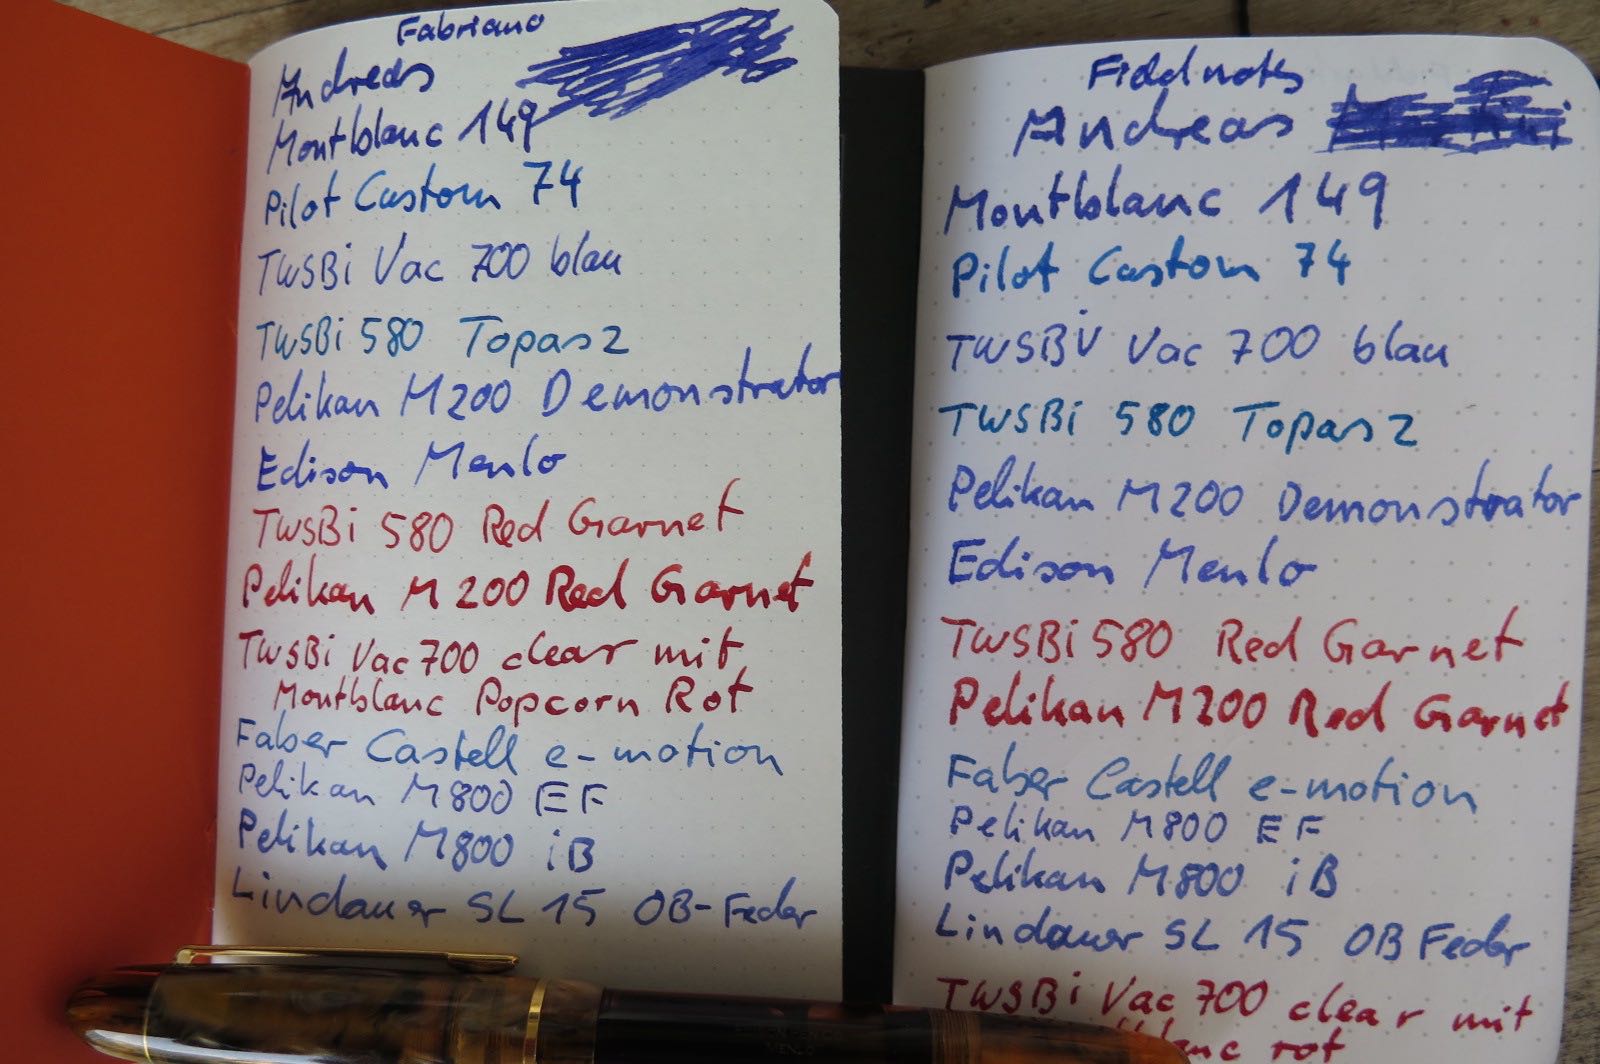 Fabriano
Andreas
Montblanc 149
Pilot Custom 74
TWSBi Vac 700 blau
TWSBi 580 Topas 2
Pelikan M200 Demonstrator
Edison Menlo
TWSBi 580 Red Garnet
Pelikan M200 Red Garnet
TWSBi Vac 700 clear mit
Montblanc Popcorn Rot
Faber Castell e-motion
Pelikan M800 EF
Pelikan M800 iB
Lindauer SL 15 OB-Feder
Fieldnots
Andreas
Montblanc 149
Pilot Custom 74
TWSBi Vac 700 blau
TWSBi 580 Topas 2
Pelikan M200 Demonstrator
Edison Menlo
TWSBi 580 Red Garnet
Pelikan M200 Red Garnet
Faber Castell e-motion
Pelikan M800 EF
Pelikan M800 iB
Lindauer SL 15 OB Feder
TWSBi Vac 700 clear mit
rot